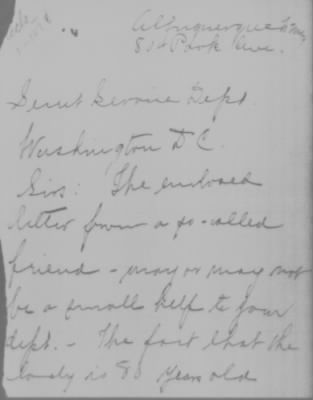 Albuquerque N Mex
814 Park Ave.
Secret Service Dept.
Washington D C.
Sirs: The enclosed
letter from a so-called
friend - may or may not
be a small help to your
dept. - The fact that the
lady is 80 years old